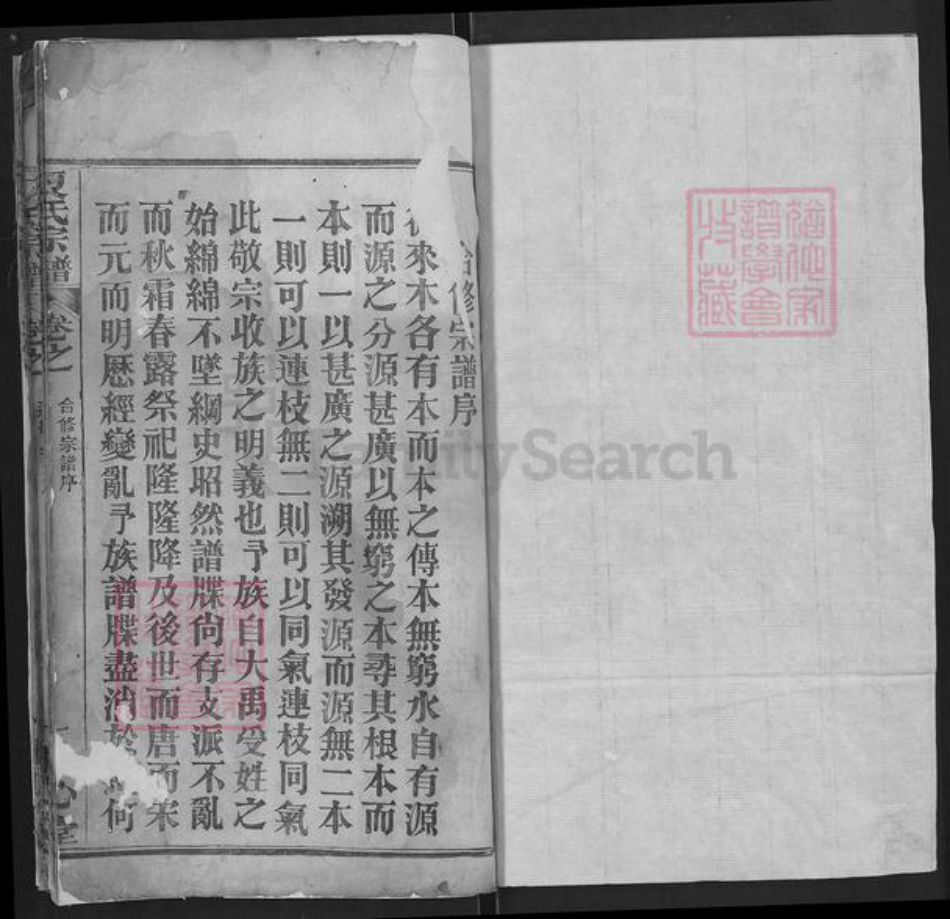 合修宗譜序
來木各有本而本之傳本無窮水自有源
而源之分源甚廣以無窮之本尋其根本而
本則一以甚廣之源溯其發源而源無二本
一則可以連枝無二則可以同氣連枝同氣
此敬宗收族之明義也予族自大禹受姓之
始綿綿不墜綱史昭然譜牒尙存支派不亂
而秋霜春露祭祀隆隆降及後世而唐而宋
而元而明歷經變亂予族譜牒盡消於何
夏氏宗譜
卷之
合修宗譜序
FamilySearch